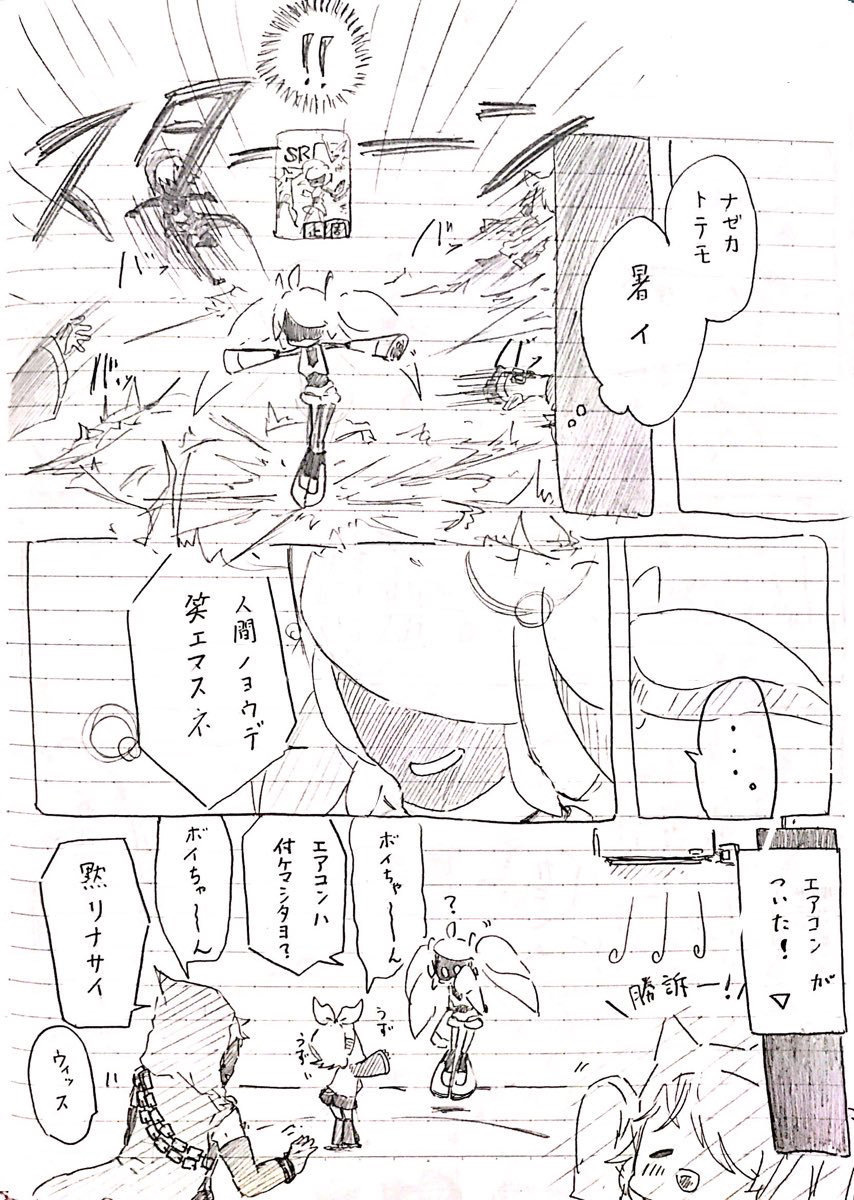 ナゼカ
トテモ
暑イ
!!
SR
バッ
バッ
バッ
バッ
・・・。
人間ノヨウデ
笑エマスネ
エアコンが
ついた!
勝訴ー!
?
ボイちゃ〜ん
エアコンハ
付ケマシタヨ?
うず
うず
ボイちゃ〜ん
黙リナサイ
ウィッス